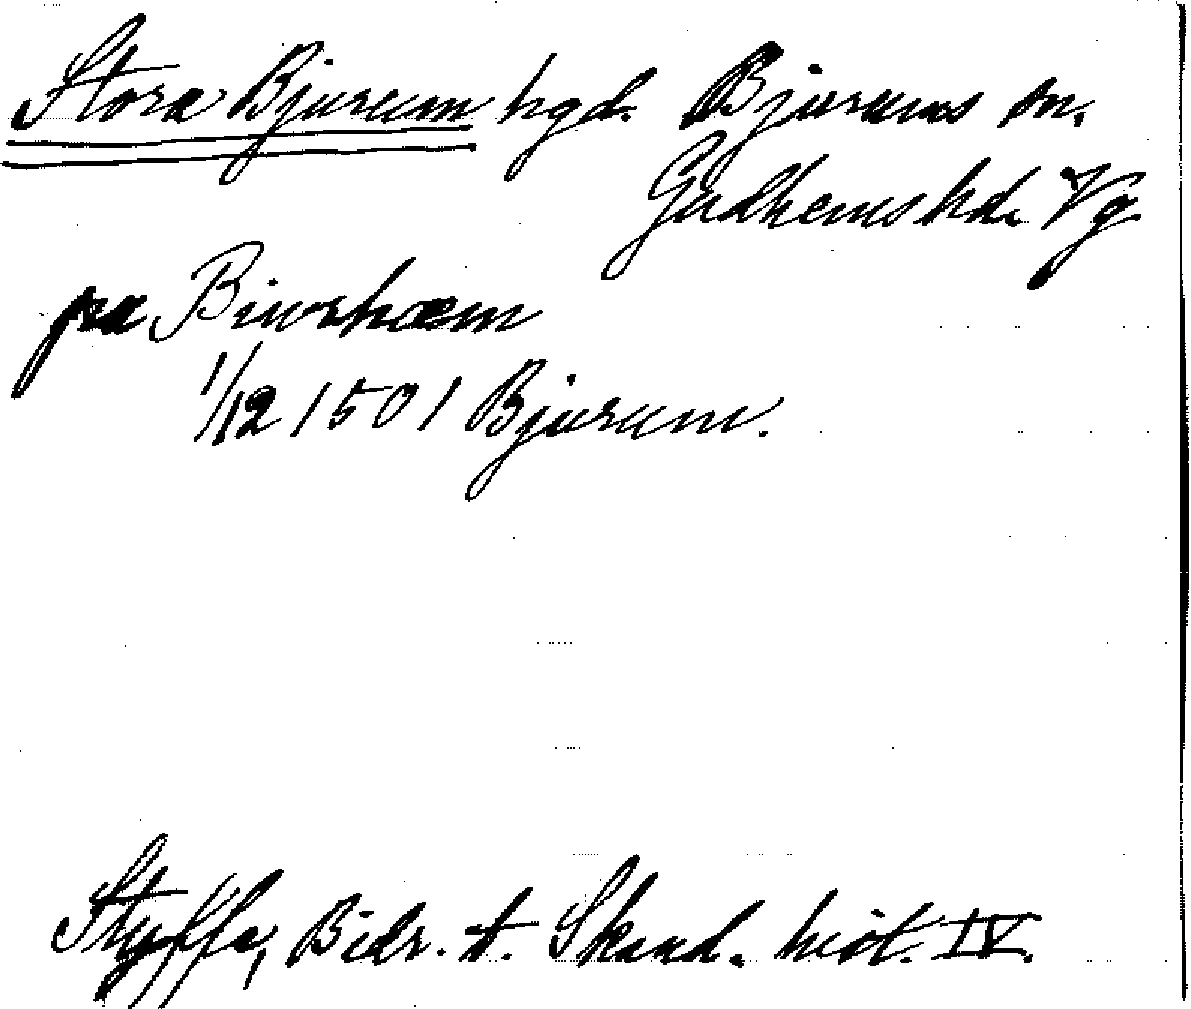 Stora Bjurum hgd. Bjurums sn.
Gudhems hd. Vg
pa Biurhæm
1/12 1501 Bjurum.
Styffe, Bidr. t. Skand. hist. IV.